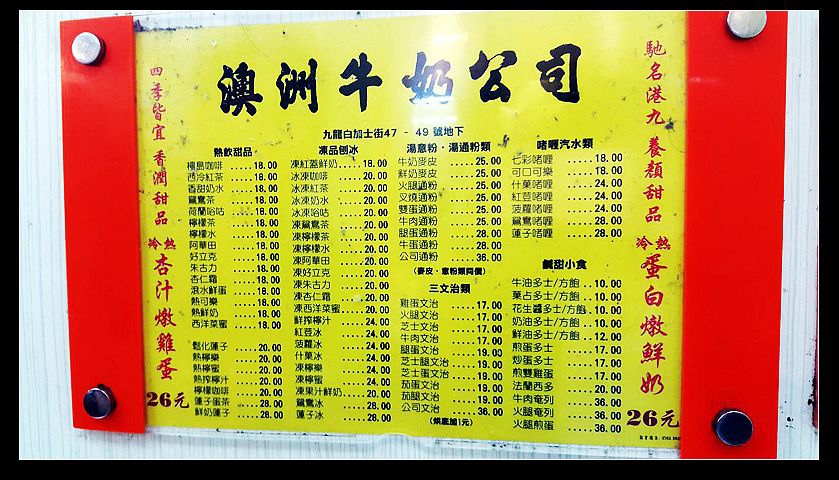 澳洲牛奶公司
九龍白加士街47 - 49 號地下
四季皆宜 香潤甜品
冷熱 杏汁燉雞蛋
26元
熱飲甜品
檀島咖啡 ..... 18.00
西冷紅茶 ..... 18.00
香甜奶水 ..... 18.00
鴛鴦茶 ..... 18.00
荷蘭哈咕 ..... 18.00
檸檬茶 ..... 18.00
檸檬水 ..... 18.00
阿華田 ..... 18.00
好立克 ..... 18.00
朱古力 ..... 18.00
杏仁霜 ..... 18.00
滾水鮮蛋 ..... 18.00
熱可樂 ..... 18.00
熱鮮奶 ..... 18.00
西洋菜蜜 ..... 18.00
鬆化蓮子 ..... 20.00
熱檸樂 ..... 20.00
熱檸蜜 ..... 20.00
熱搾檸汁 ..... 20.00
檸檬咖啡 ..... 20.00
蓮子蛋茶 ..... 28.00
鮮奶蓮子 ..... 28.00
凍品刨冰
凍紅荳鮮奶 ..... 18.00
冰凍咖啡 ..... 20.00
冰凍紅茶 ..... 20.00
冰凍奶水 ..... 20.00
冰凍哈咕 ..... 20.00
凍鴛鴦茶 ..... 20.00
凍檸檬茶 ..... 20.00
凍檸檬水 ..... 20.00
凍阿華田 ..... 20.00
凍好立克 ..... 20.00
凍朱古力 ..... 20.00
凍杏仁霜 ..... 20.00
凍西洋菜蜜 ..... 20.00
鮮搾檸汁 ..... 24.00
紅荳冰 ..... 24.00
菠蘿冰 ..... 24.00
什菓冰 ..... 24.00
凍檸樂 ..... 24.00
凍檸蜜 ..... 24.00
凍果汁鮮奶 ..... 20.00
鴛鴦冰 ..... 28.00
蓮子冰 ..... 28.00
湯意粉・湯通粉類
牛奶麥皮 ..... 25.00
鮮奶麥皮 ..... 25.00
火腿通粉 ..... 25.00
叉燒通粉 ..... 25.00
雙蛋通粉 ..... 25.00
牛肉通粉 ..... 25.00
腿蛋通粉 ..... 28.00
牛蛋通粉 ..... 28.00
公司通粉 ..... 36.00
(麥皮・意粉類同價)
三文治類
雞蛋文治 ..... 17.00
火腿文治 ..... 17.00
芝士文治 ..... 17.00
牛肉文治 ..... 17.00
腿蛋文治 ..... 19.00
芝士腿文治 ..... 19.00
芝士蛋文治 ..... 19.00
茄蛋文治 ..... 19.00
茄腿文治 ..... 19.00
公司文治 ..... 36.00
(烘底加1元)
啫喱汽水類
七彩啫喱 ..... 18.00
可口可樂 ..... 18.00
什菓啫喱 ..... 24.00
紅荳啫喱 ..... 24.00
菠蘿啫喱 ..... 24.00
鴛鴦啫喱 ..... 28.00
蓮子啫喱 ..... 28.00
鹹甜小食
牛油多士/方飽 ..10.00
菓占多士/方飽 ..10.00
花生醬多士/方飽 ..10.00
奶油多士/方飽 ..10.00
鮮油多士/方飽 ..12.00
煎蛋多士 ..... 17.00
炒蛋多士 ..... 17.00
煎雙雞蛋 ..... 17.00
法蘭西多 ..... 20.00
牛肉奄列 ..... 36.00
火腿奄列 ..... 36.00
火腿煎蛋 ..... 36.00
馳名港九 養顏甜品
冷熱 蛋白燉鮮奶
26元